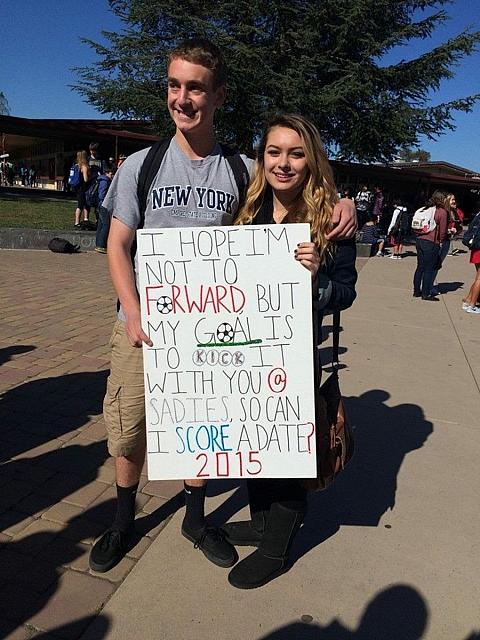 NEW YORK
I HOPE I'M
NOT TO
FORWARD, BUT
MY GOAL IS
TO KICK IT
WITH YOU @
SADIES, SO CAN
I SCORE A DATE?
2015